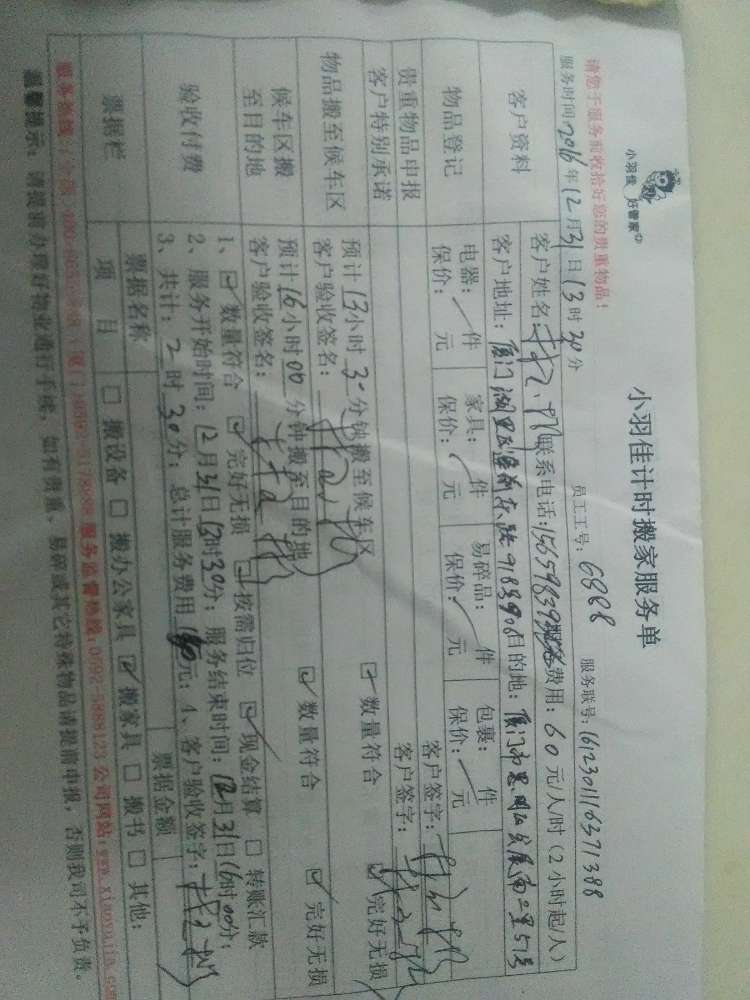 小羽佳 好管家
小羽佳计时搬家服务单
请您于服务前收拾好您的贵重物品!
员工工号: 6888 服务联号: 1612301116371388
服务时间: 2016年12月31日13时30分
客户资料
客户姓名: 联系电话: 费用: 60元/人/时(2小时起/人)
客户地址: 厦门湖里区 目的地: 厦门市思明区 南二里51号
物品登记
电器: 件 家具: 件 易碎品: 件 包裹: 件
保价: 元 保价: 元 保价: 元 保价: 元
贵重物品申报 客户签字:
客户特别承诺 客户签字:
物品搬至候车区
预计13小时30分钟搬至候车区 ☑数量符合 ☑完好无损
客户验收签名:
候车区搬至目的地
预计16小时00分钟搬至目的地 ☑数量符合 ☑完好无损
客户验收签名:
验收付费
1、☑数量符合 ☑完好无损 ☑按需归位 ☑现金结算 □转账汇款
2、服务开始时间: 12月31日13时30分; 服务结束时间: 12月31日16时00分;
3、共计: 2时30分; 总计服务费用 元; 4、客户验收签字:
票据栏
票据名称 票据金额
项目 □搬设备 □搬办公家具 ☑搬家具 □搬书 □其他:
服务监督热线: 0592-5888123 公司网站: www.xiaoyujia.com
温馨提示: 请提前办理好物业通行手续, 如有贵重、易碎或其它特殊物品请提前申报, 否则我司不予负责。